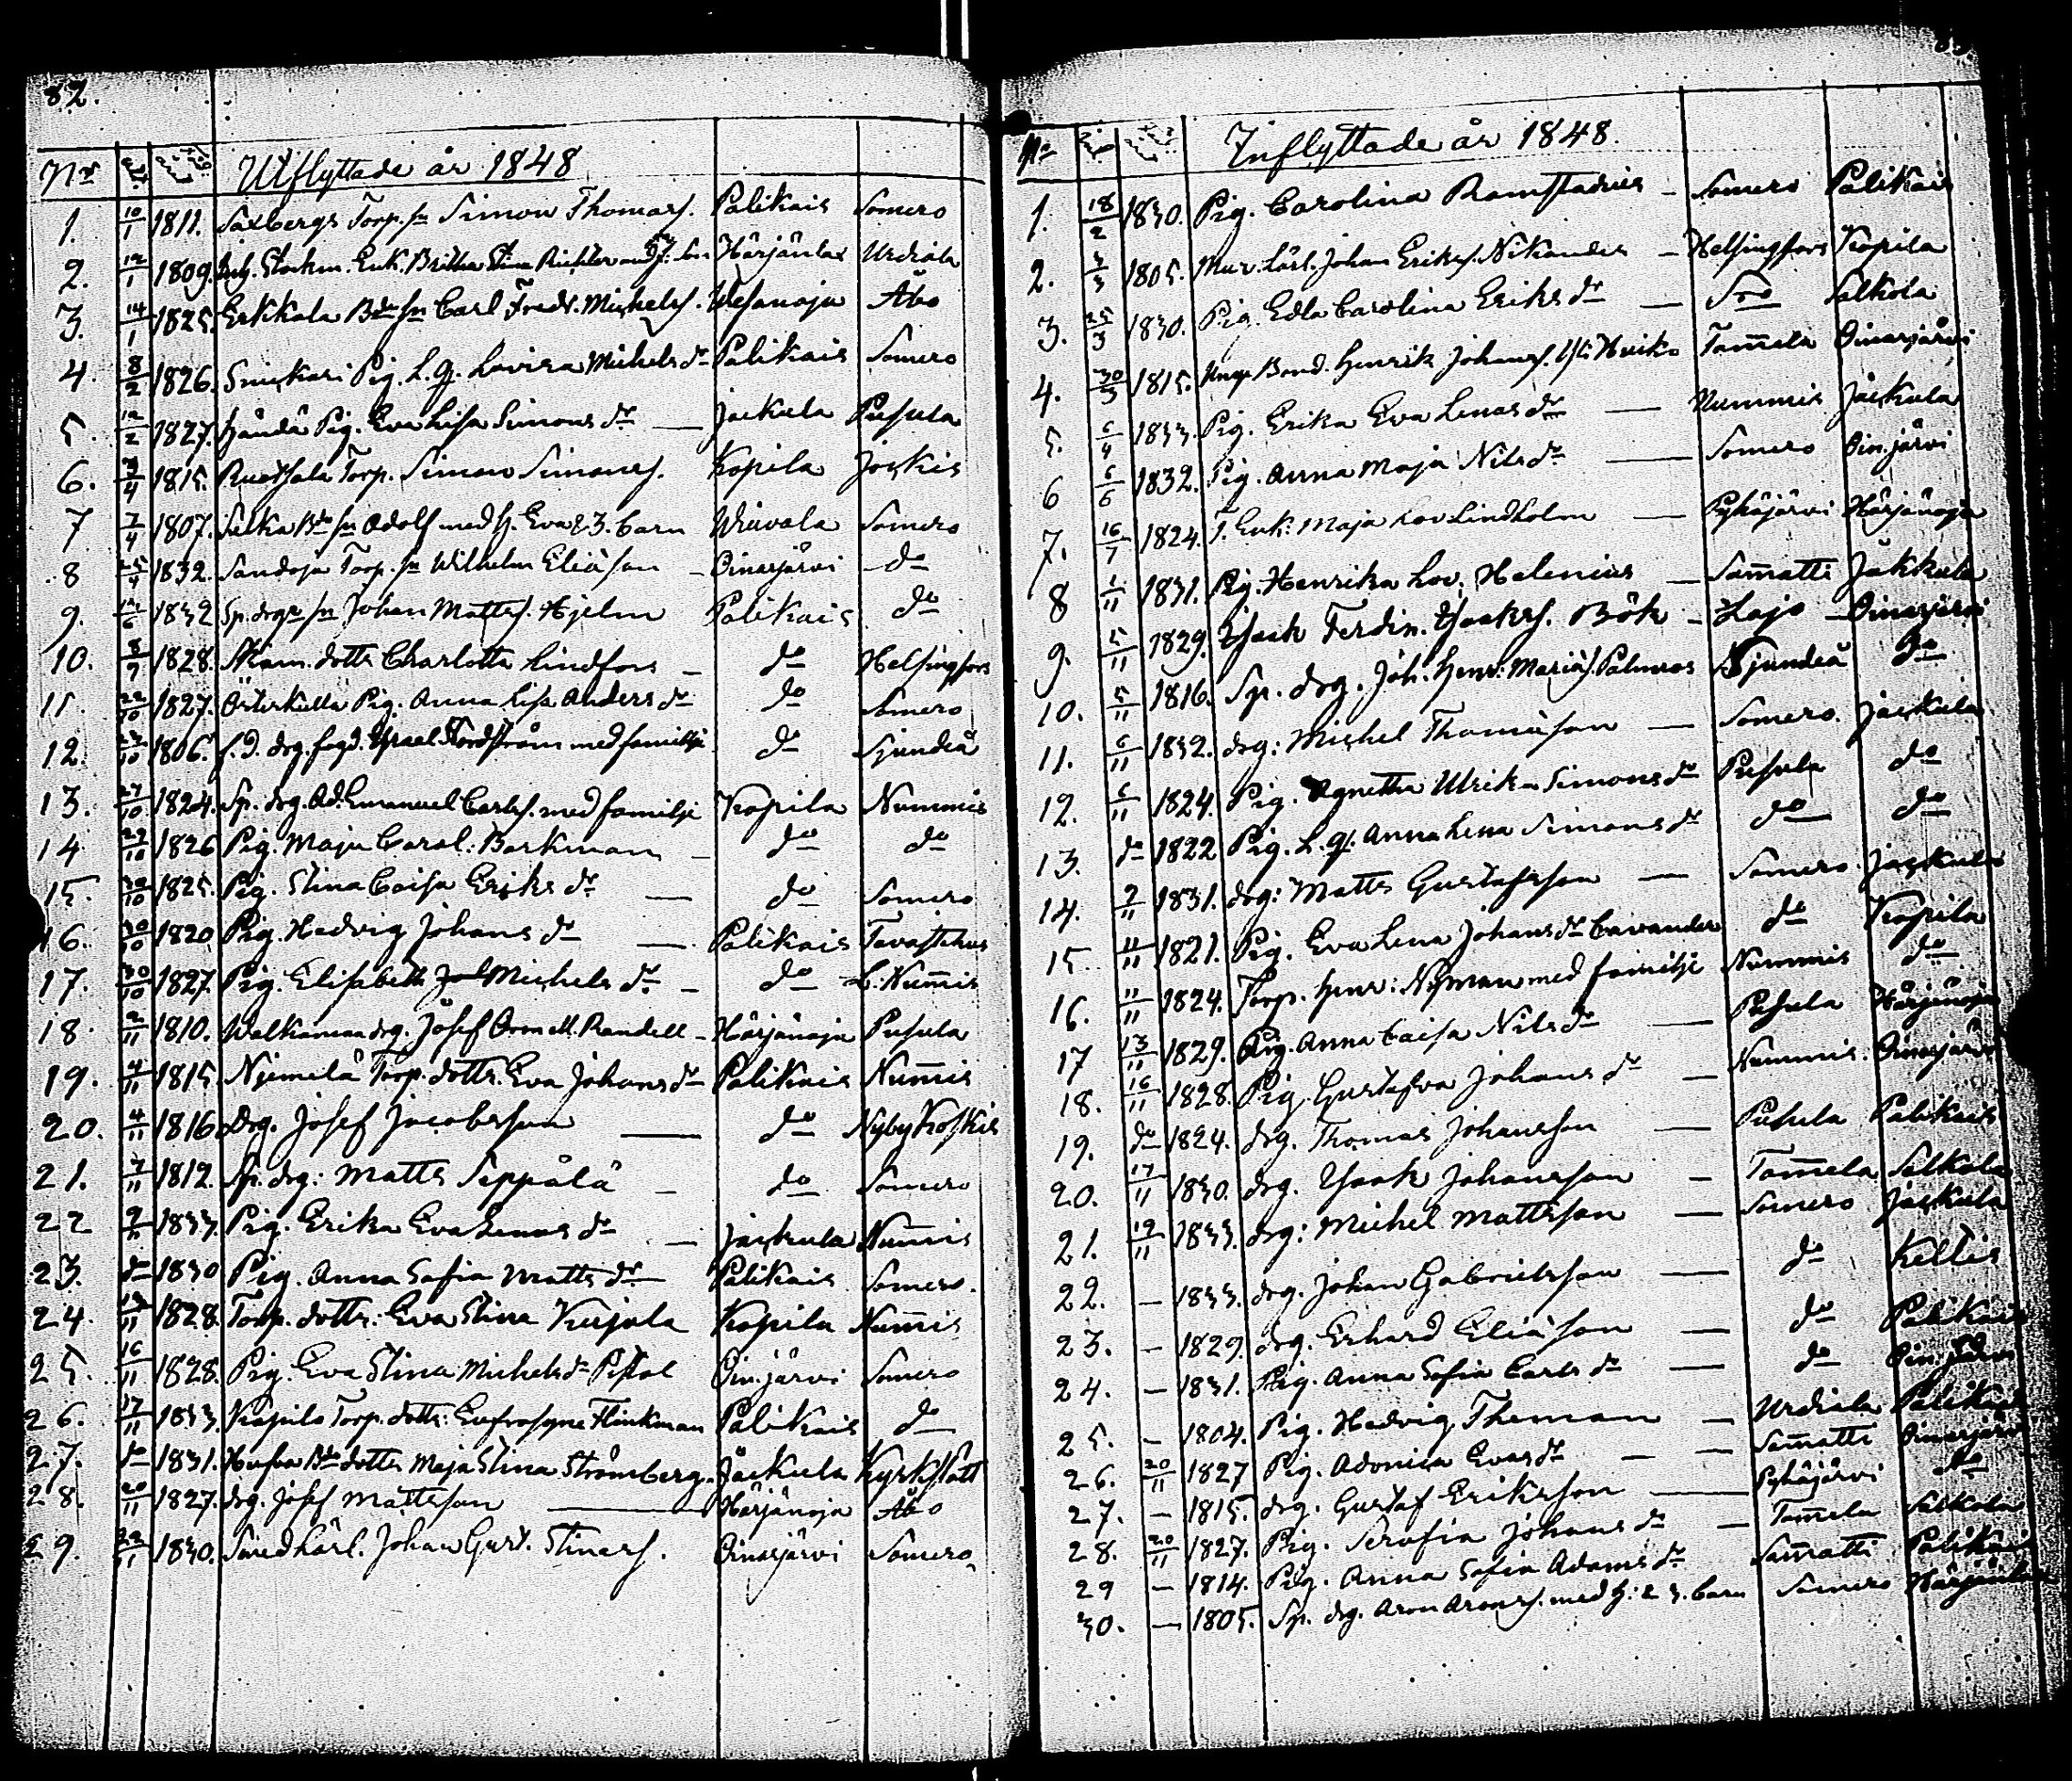 82.
No Utflyttade år 1848
1. 10/1 1811. Saxbergs Torp. sn Simon Thomass. Palikais Somero
2. 12/1 1809. Stockm. Enk. Britha Stina Richter Härjänlax Urdiala
3. 14/1 1825. Erkkala Bde sn Carl Fredr. Michelss. Wesanoja Åbo
4. 8/2 1826. Pig. L. q. Lovisa Michels dr Palikais Somero
5. 12/2 1827. Pig. Eva Lisa Simons dr — Jackula Pusula
6. /4 1815. Ruotsala Torp. Simon Simonss. Kopila Jockis
7 7/4 1807. Salka Bde sn Adolf med h. Eva & 3. barn Wiuvala Somero
8 25/4 1832. Sandoja Torp. sn Wilhelm Eliäson — Oinasjärvi — do
9. 12/6 1832 Sp. drgs sn Johan Mattss. Hjelm Palikais do
10. 8/9 1828. dottr Charlotta Lindfors — do Helsingfors
11. 22/10 1827. Österkulla Pig. Anna Lisa Anders dr do Somero
12. 27/10 1806. f. d. drg. fogd. Israel Nordström med familje do Sjundeå
13. 27/10 1824. Sp. drg. Ad. Emanuel Carlss. med familje Kopila Nummis
14 29/10 1826 Pig. Maja Carol. Barkman — do do
15. 30/10 1825. Pig. Stina Caisa Eriks dr — do Somero
16. 30/10 1820 Pig. Hedvig Johans dr — Palikais Tavastehus
17. 30/10 1827. Pig. Elisabeth Michels dr — do L. Numis
18. 2/11 1810. Walkamaa drg. Josef Randell — Härjänoja Pusula
19. 4/11 1815. Njemelä Torp. dottr. Eva Johans dr Palikais Numis
20. 4/11 1816. Drg. Josef Jacobsson — do Nyby Koskis
21. 7/11 1812. Sp. drg: Matts Seppälä — do Somero
22 9/11 1833. Pig. Erika Eva Lenas dr — Jackula Numis
23. do 1830 Pig. Anna Sofia Matts dr — Palikais Somero.
24. 13/11 1828. Torp. dottr: Eva Stina Kujala Kopila Numis
25. 16/11 1828. Pig. Eva Stina Michels dr Pistol Oin.järvi Somero
26. 17/11 1833. Kopila Torp. dottr. Eufrosyne Flinkman Palikais do
27. do 1831. Bde dottr Maja Stina Strömberg. Jäckula Kyrkslätt
28. 20/11 1827. drg. Josef Mattsson — Härjänoja Åbo
29. 22/11 1830. Smedkarl. Johan Gust. Stinass. Oinasjärvi Somero
No Inflyttade år 1848.
1. 18/2 1830. Pig. Carolina Ramstadius — Somero Palikais
2. 3/3 1805. Mur. Lärl. Johan Erikss. Nikander — Helsingfors Kopila
3. 25/3 1830. Pig. Edla Carolina Eriks dr — do Salkola
4. 30/3 1815. Bond. Henrik Johanss. Tammela Oinasjärvi
5. 6/4 1833. Pig. Erika Eva Lenas dr — Nummis Jäckula
6 6/6 1832. Pig. Anna Maja Nils dr — Somero Oin.järvi
7. 16/7 1824. T. Enk: Maja Lov Lindholm — Pyhäjärvi Härjänoja
8 1/11 1831. Pig. Henrika Lov. Helenius — Sammatti Jäkkula
9. 5/11 1829. Isaak Ferdin. Isaakss. Böök — Lojo — Oinasjärvi
10. 5/11 1816. Sp. drg. Joh. Henr: Mariäs. Palmroos Sjundeå do
11. 6/11 1832. drg: Michel Thomäson — Somero. Jackula
12. 6/11 1824. Pig. Agnetha Ulrika Simons dr Pusula do
13. do 1822 Pig. L. q. Anna Lena Simons dr do do
14. 9/11 1831. drg: Matts Gustafsson — Somero. Jackula
15. 11/11 1821. Pig. Eva Lena Johans dr Cavander do Kopila
16. 11/11 1824. Torp. Henr: Nyman med familje Nummis do
17 13/11 1829. Pig. Anna Caisa Nils dr — Pusula Härjänoja
18. 16/11 1828. Pig. Gustafva Johans dr — Nummis. Oinasjärvi
19. do 1824. drg. Thomas Johansson — Pusula Palikais
20. 17/11 1830. drg. Isaak Johansson — Tammela Salkola
21. 19/11 1833. drg: Michel Mattsson — Somero Jackula
22. — 1833. drg. Johan Gabrielsson — do Keltis
23. — 1829. drg. Erhard Eliäson — do Palikais
24. — 1831. Pig. Anna Sofia Carls dr — do Oin.järvi
25. — 1804. Pig. Hedvig Theman — Urdiala Palikais
26. 20/11 1827 Pig. Adonica Evas dr — Sammatti Oinasjärvi
27. — 1815. drg. Gustaf Eriksson — Pyhäjärvi do
28. 20/11 1827. Pig. Serafia Johans dr — Tammela Salkola
29 — 1814. Pig. Anna Sofia Adams dr Sammatti Palikais
30. — 1805. Sp. drg. Aron Aronss. med h: & 3. barn Somero